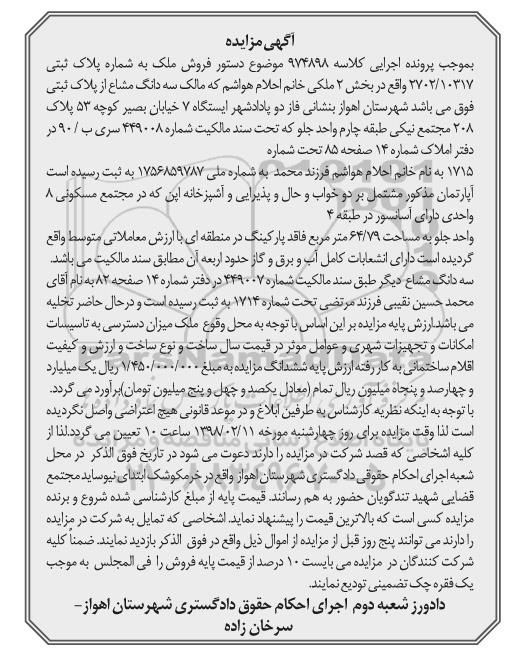 آگهی مزایده
بموجب پرونده اجرایی کلاسه ۹۷۴۸۹۸ موضوع دستور فروش ملک به شماره پلاک ثبتی
۲۷۰۲/۱۰۳۱۷ واقع در بخش ۲ ملکی خانم احلام هواشم که مالک سه دانگ مشاع از پلاک ثبتی
فوق می باشد شهرستان اهواز بنشانی فاز دو پادادشهر ایستگاه ۷ خیابان بصیر کوچه ۵۳ پلاک
۲۰۸ مجتمع نیکی طبقه چارم واحد جلو که تحت سند مالکیت شماره ۴۴۹۰۰۸ سری ب / ۹۰ در
دفتر املاک شماره ۱۴ صفحه ۸۵ تحت شماره
۱۷۱۵ به نام خانم احلام هواشم فرزند محمد به شماره ملی ۱۷۵۶۸۵۹۷۸۷ به ثبت رسیده است
آپارتمان مذکور مشتمل بر دو خواب و حال و پذیرایی و آشپزخانه اپن که در مجتمع مسکونی ۸
واحدی دارای آسانسور در طبقه ۴
واحد جلو به مساحت ۶۴/۷۹ متر مربع فاقد پارکینگ در منطقه ای با ارزش معاملاتی متوسط واقع
گردیده است دارای انشعابات کامل آب و برق و گاز حدود اربعه آن مطابق سند مالکیت می باشد.
سه دانگ مشاع دیگر طبق سند مالکیت شماره ۴۴۹۰۰۷ در دفتر شماره ۱۴ صفحه ۸۲ به نام آقای
محمد حسین نقیبی فرزند مرتضی تحت شماره ۱۷۱۴ به ثبت رسیده است و درحال حاضر تخلیه
می باشد.ارزش پایه مزایده بر این اساس با توجه به محل وقوع ملک میزان دسترسی به تاسیسات
امکانات و تجهیزات شهری و عوامل موثر در قیمت سال ساخت و نوع ساخت و ارزش و کیفیت
اقلام ساختمانی به کار رفته ارزش پایه ششدانگ مزایده به مبلغ ۱/۴۵۰/۰۰۰/۰۰۰ ریال یک میلیارد
و چهارصد و پنجاه میلیون ریال تمام (معادل یکصد و چهل و پنج میلیون تومان)برآورد می گردد.
با توجه به اینکه نظریه کارشناس به طرفین ابلاغ و در موعد قانونی هیچ اعتراضی واصل نگردیده
است لذا وقت مزایده برای روز چهارشنبه مورخه ۱۳۹۸/۰۲/۱۱ ساعت ۱۰ تعیین می گردد.لذا از
کلیه اشخاصی که قصد شرکت در مزایده را دارند دعوت می شود در تاریخ فوق الذکر در محل
شعبه اجرای احکام حقوقی دادگستری شهرستان اهواز واقع در خرمکوشک ابتدای نیوساید مجتمع
قضایی شهید تندگویان حضور به هم رسانند. قیمت پایه از مبلغ کارشناسی شده شروع و برنده
مزایده کسی است که بالاترین قیمت را پیشنهاد نماید. اشخاصی که تمایل به شرکت در مزایده
را دارند می توانند پنج روز قبل از مزایده از اموال ذیل واقع در فوق الذکر بازدید نمایند. ضمناً کلیه
شرکت کنندگان در مزایده می بایست ۱۰ درصد از قیمت پایه فروش را فی المجلس به موجب
یک فقره چک تضمینی تودیع نمایند.
دادورز شعبه دوم اجرای احکام حقوق دادگستری شهرستان اهواز-
سرخان زاده